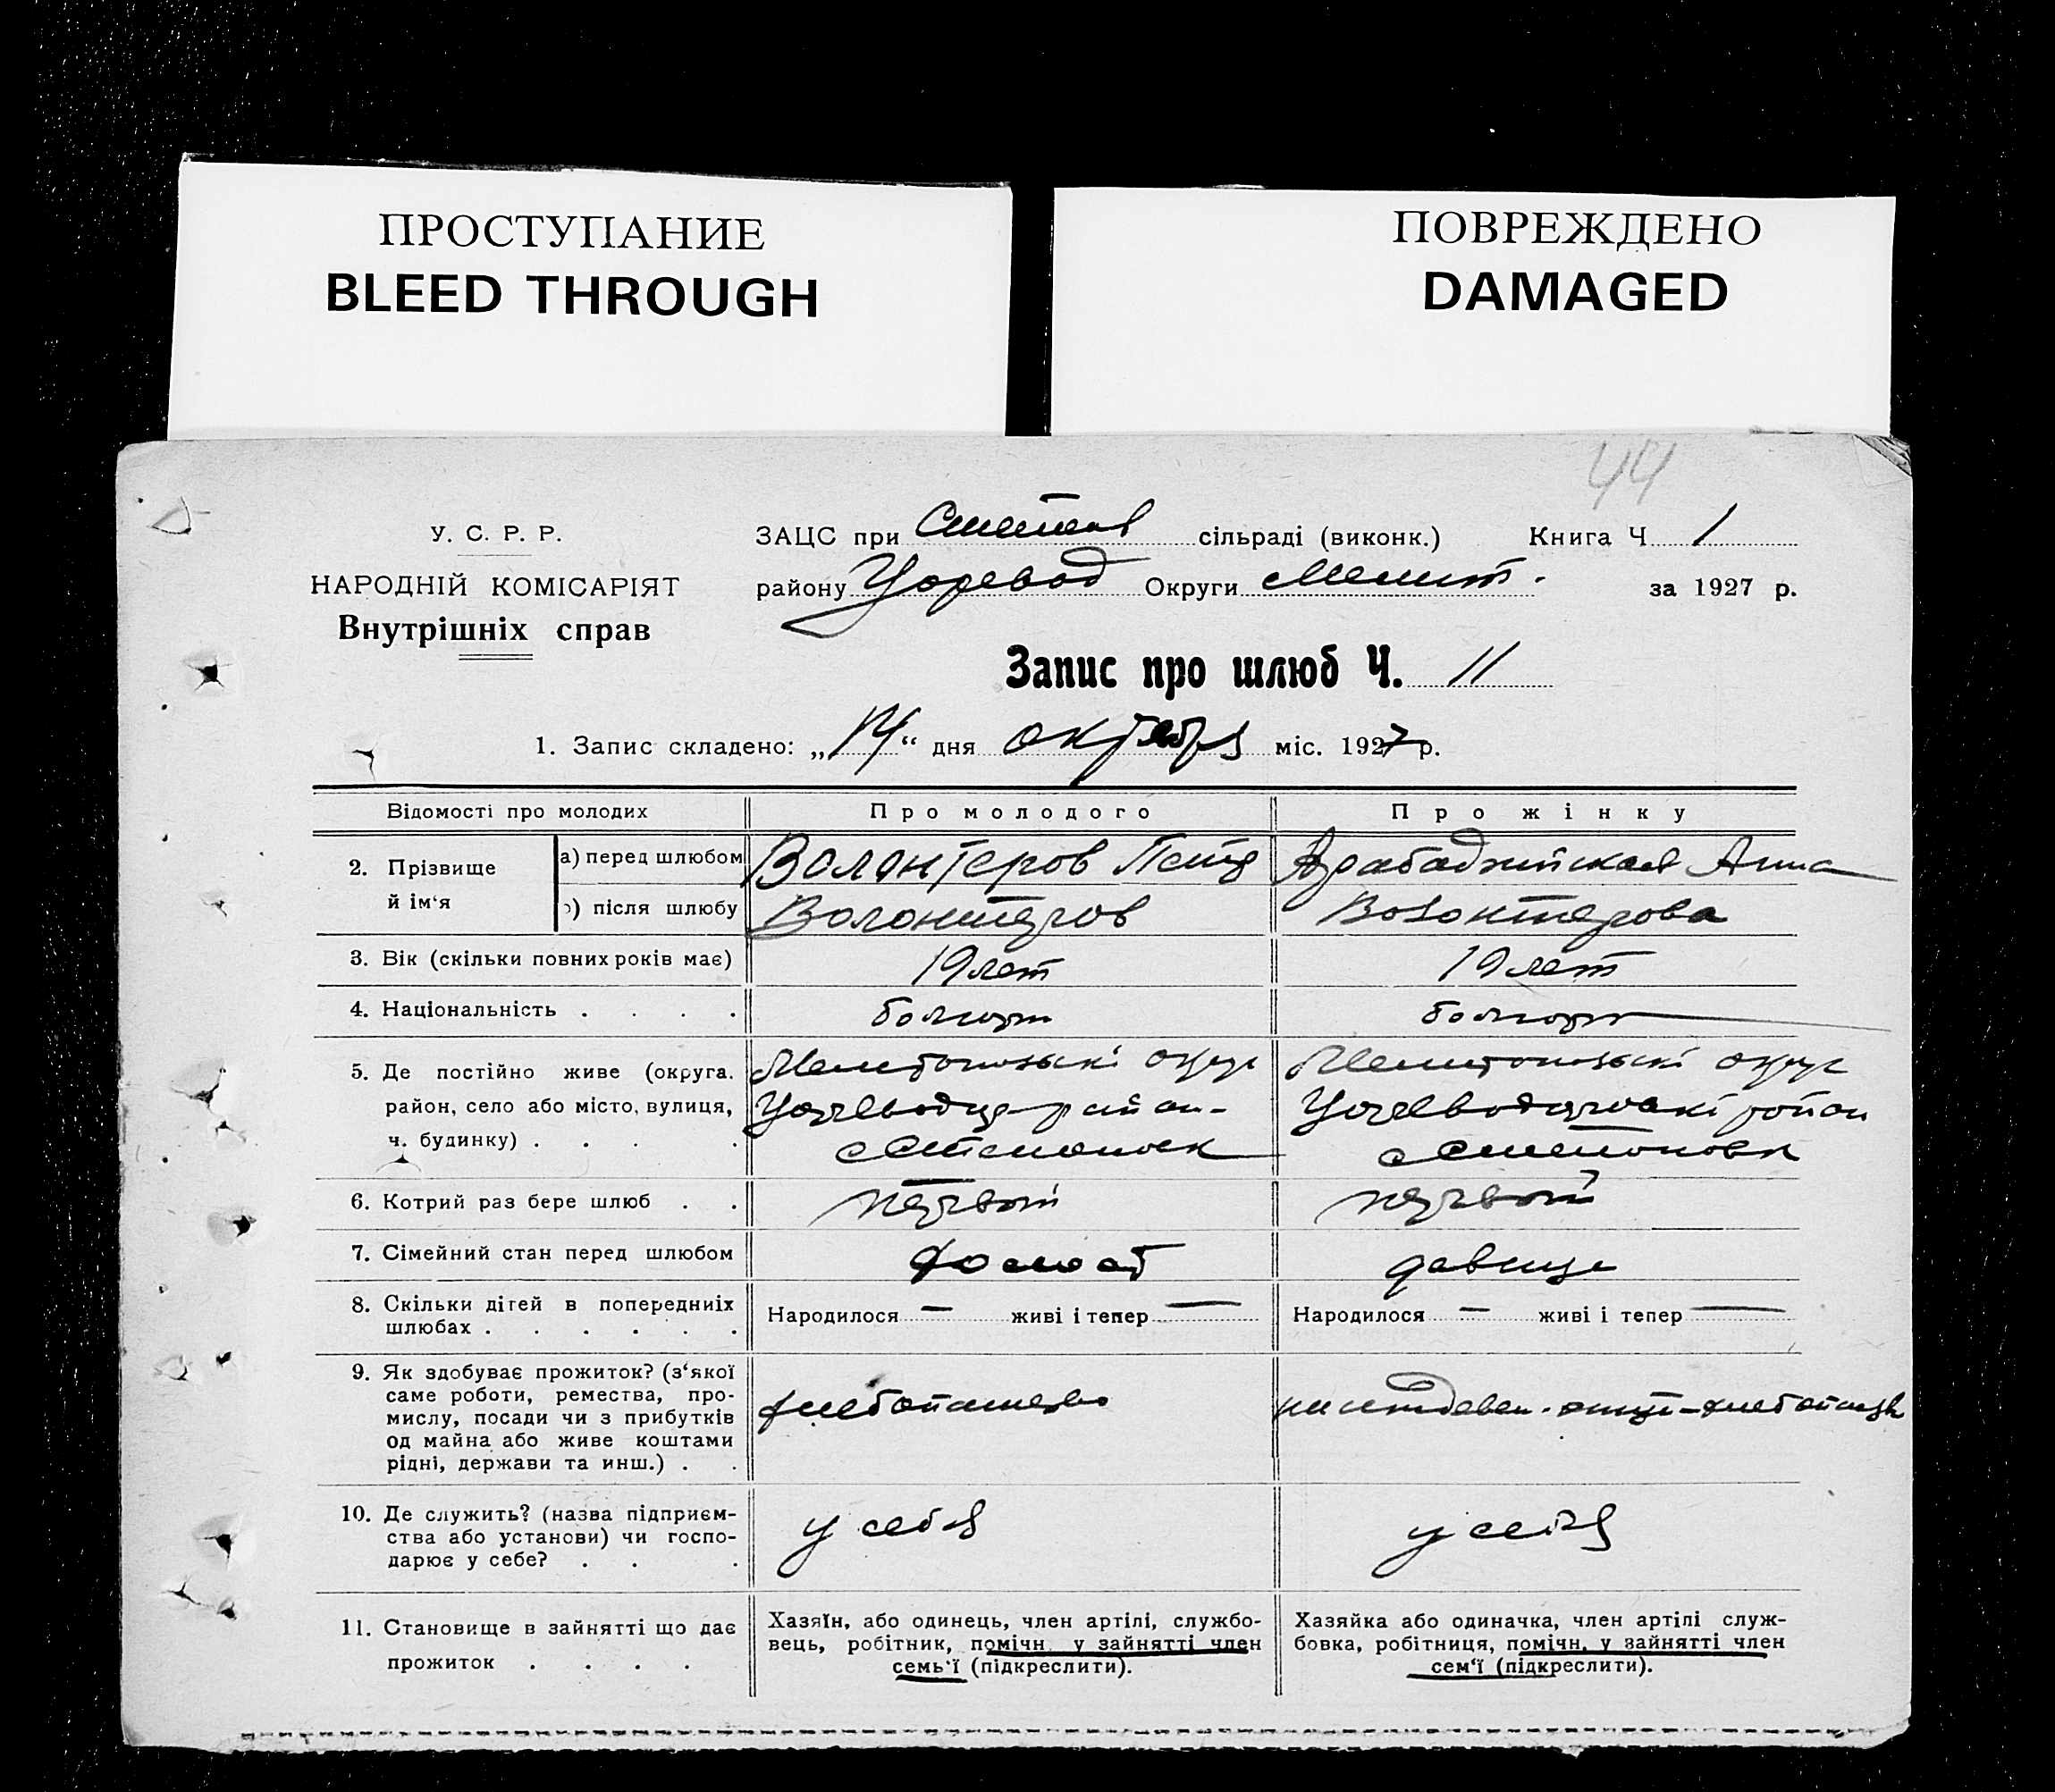 ПРОСТУПАНИЕ
BLEED THROUGH
ПОВРЕЖДЕНО
DAMAGED
44
У. С. Р. Р.
НАРОДНІЙ КОМІСАРІЯТ
Внутрішніх справ
ЗАЦС при сільраді (виконк.) Книга Ч 1
району Царевод Округи Мелит. за 1927 р.
Запис про шлюб Ч. 11
1. Запис складено: „14“ дня октября міс. 1927 р.
Відомості про молодих
Про молодого
Про жінку
2. Прізвище й ім‘я
а) перед шлюбом
Волонтеров Петр
Арабаджийская Анна
б) після шлюбу
Волонтеров
Волонтерова
3. Вік (скільки повних років має)
19 лет
19 лет
4. Національність . . . .
болгарин
болгарк
5. Де постійно живе (округа,
район, село або місто, вулиця,
ч. будинку) . . . .
Мелитопольскі округ
район
Мелитопольскі округ
район
6. Котрий раз бере шлюб . .
первый
первый
7. Сімейний стан перед шлюбом
холост
девица
8. Скільки дітей в попередниіх
шлюбах . . . . . .
Народилося — живі і тепер —
Народилося — живі і тепер —
9. Як здобуває прожиток? (з‘якої
саме роботи, ремества, про-
мислу, посади чи з прибутків
од майна або живе коштами
рідні, держави та инш.) . .
хлебопашество
10. Де служить? (назва підприєм-
ства або установи) чи госпо-
дарює у себе? . . .
у себя
у себя
11. Становище в зайнятті що дає
прожиток . . . .
Хазяїн, або одинець, член артілі, службо-
вець, робітник, помічн. у зайнятті член
семь‘ї (підкреслити).
Хазяйка або одиначка, член артілі служ-
бовка, робітниця, помічн. у зайнятті член
сем‘ї (підкреслити).